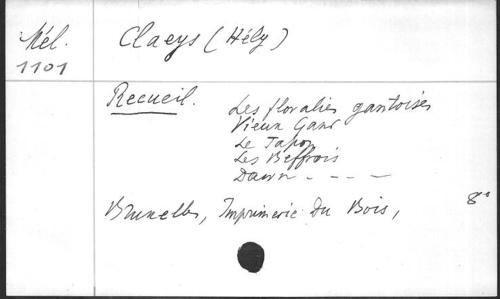 Mél.
1101
Claeys (Hély)
Recueil.
Les floralies gantoises
Vieux Gand
Le Japon
Les Beffrois
Dawn - - -
Bruxelles, Imprimerie Du Bois,
8°